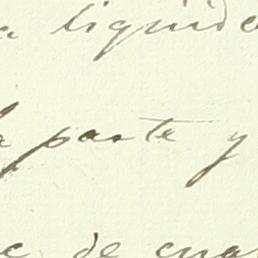 liquide
parte y
de cua